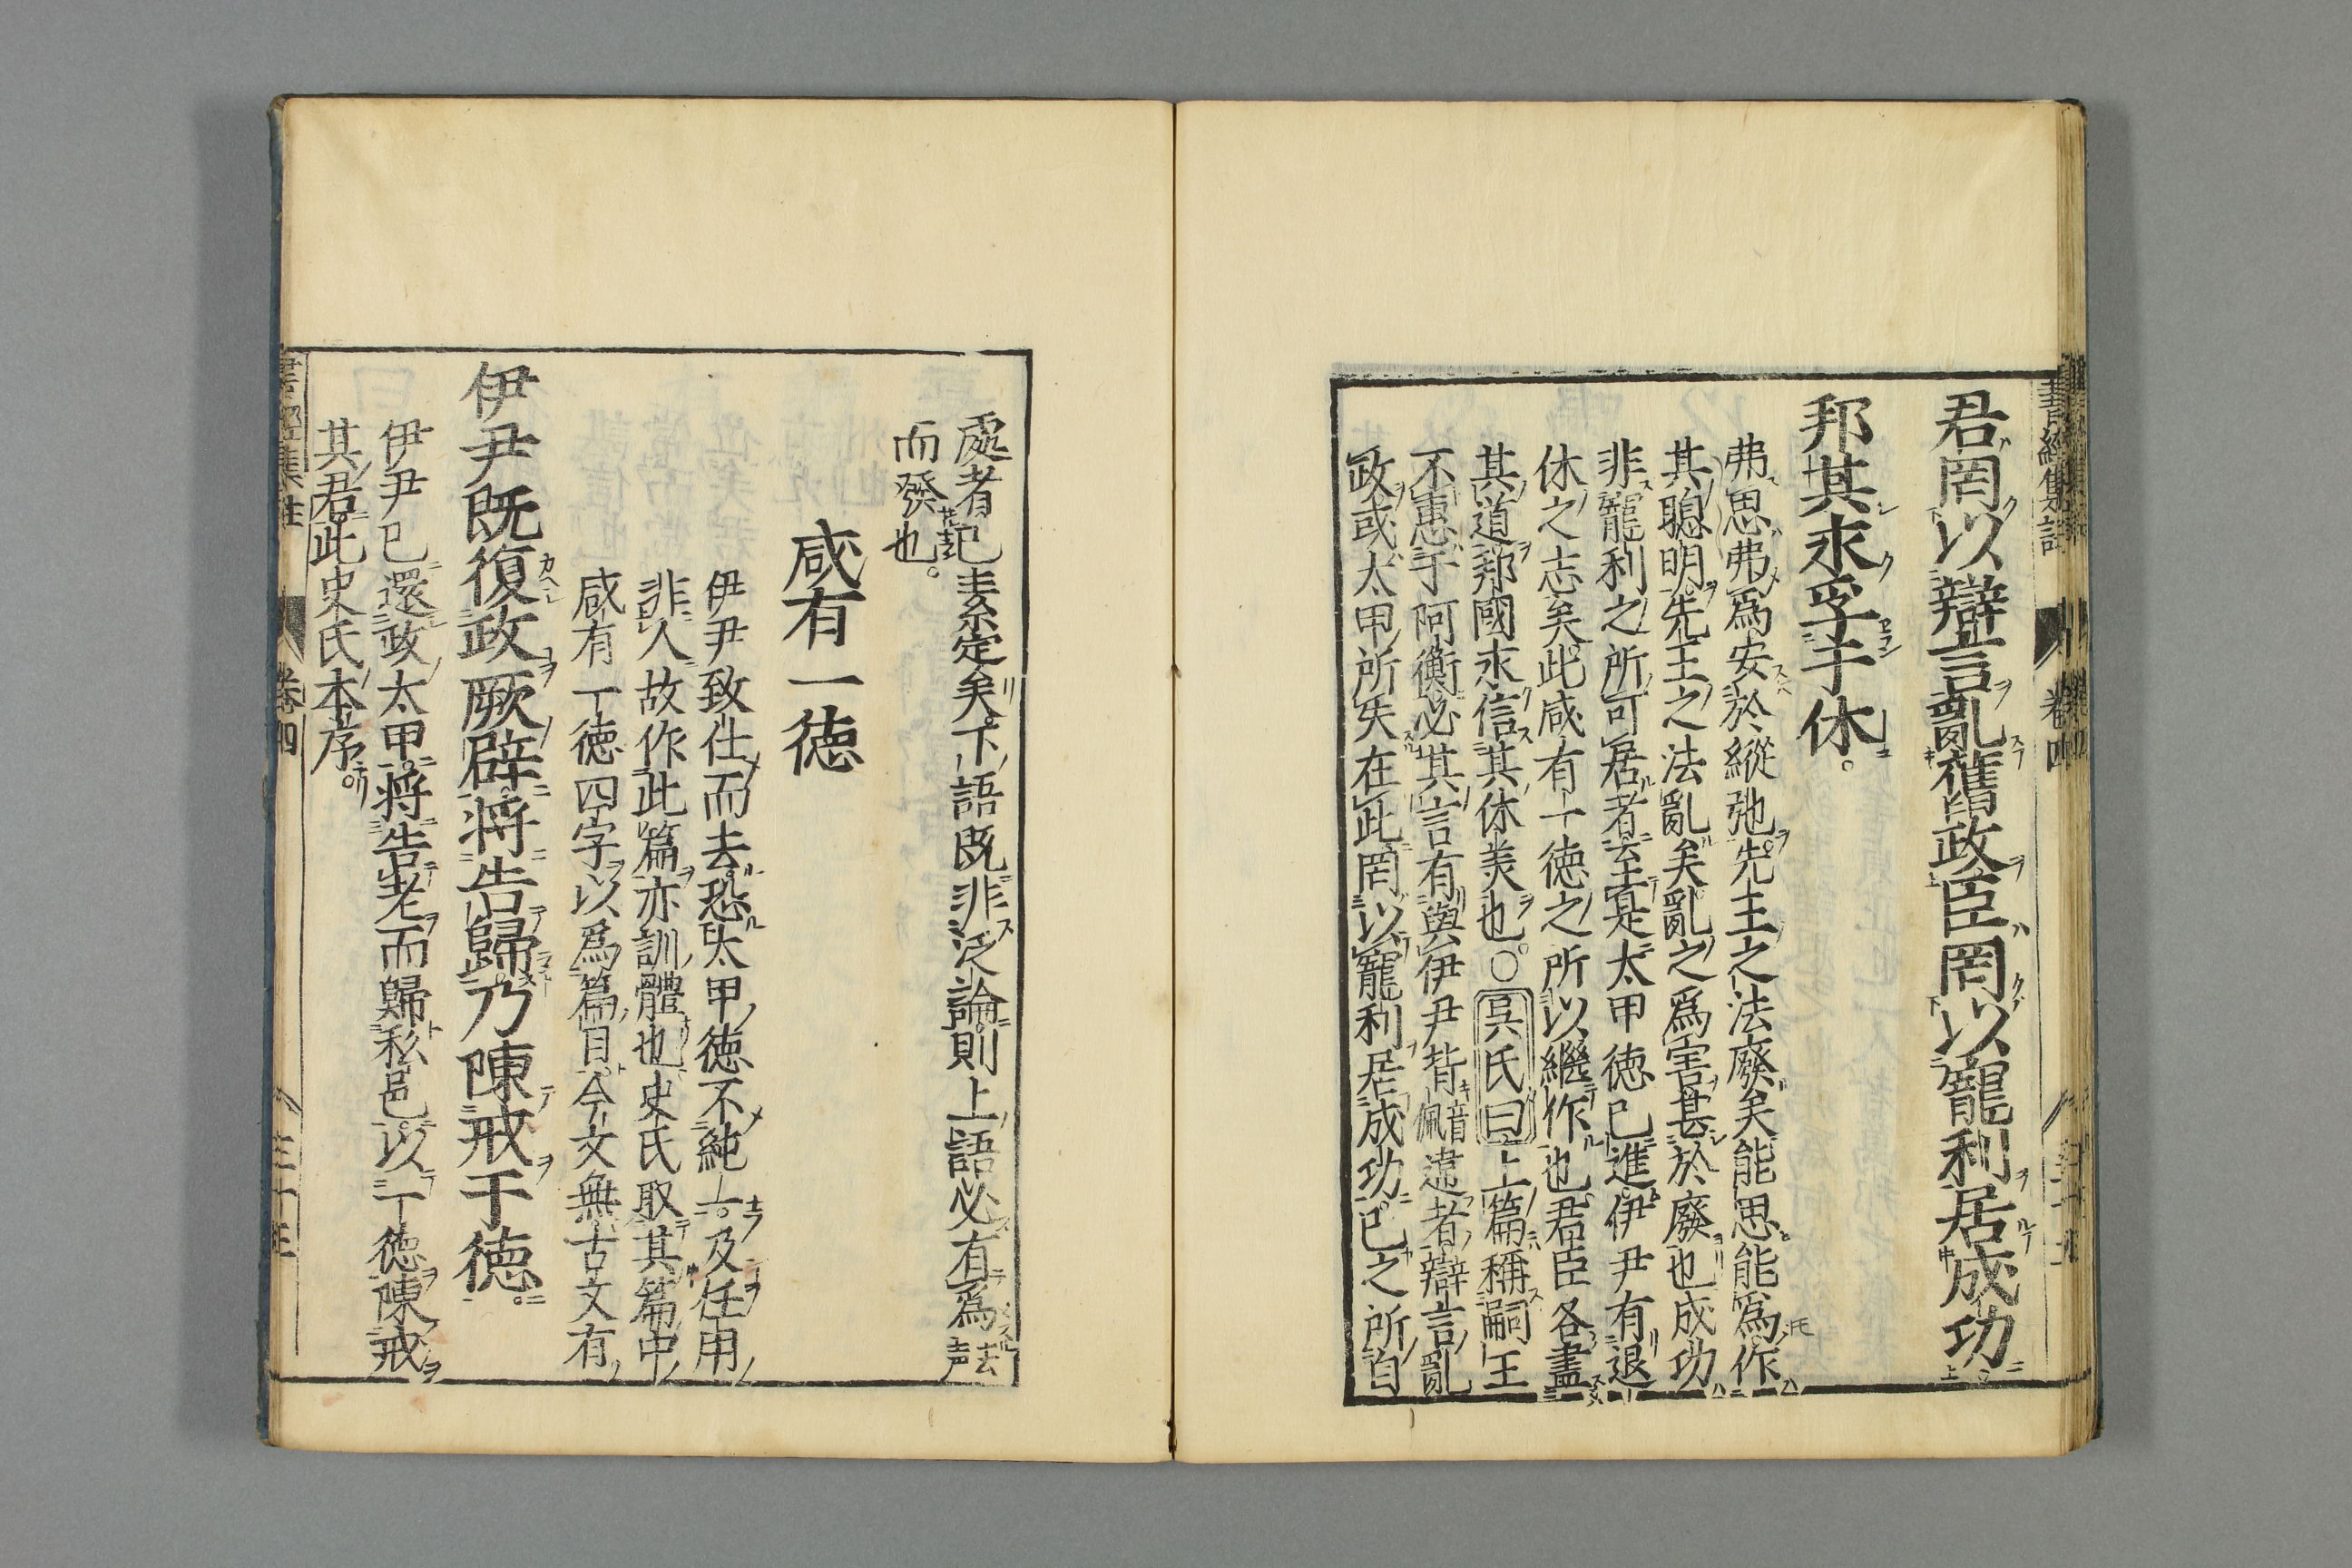 君罔以辯言亂舊政臣罔以寵利居成功
邦其永孚于休。
弗思弗爲安於縱弛先王之法廢矣能思能爲作
其聰明先王之法亂矣亂之爲害甚於廢也成功
非寵利之所可居者至是太甲德已進伊尹有退
休之志矣此咸有一德之所以繼作也君臣各盡
其道邦國永信其休美也○吳氏曰上篇稱嗣王
不惠于阿衡必其言有與伊尹背音佩違者辯言亂
政或太甲所失在此罔以寵利居成功已之所自
處者已素定矣下語既非泛論則上語必有爲去聲
而發也。
咸有一德
伊尹致仕而去恐太甲德不純一及任用
非人故作此篇亦訓體也史氏取其篇中
咸有一德四字以爲篇目今文無古文有
伊尹既復政厥辟將告歸乃陳戒于德。
伊尹已還政太甲將告老而歸私邑以一德陳戒
其君此史氏本序。
書經集註 卷四